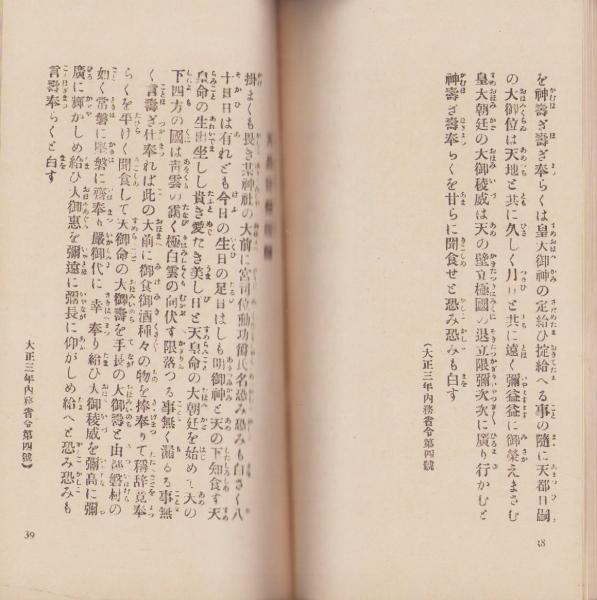 を神壽ぎ壽ぎ奉らくは皇大御神の定給ひ掟給へる事の隨に天都日嗣
の大御位は天地と共に久しく月日と共に遠く彌益益に御榮えまさむ
皇大朝廷の大御稜威は天の壁立極國の退立限彌次次に廣り行かむと
神壽ぎ壽ぎ奉らくを甘らに聞食せと恐み恐みも白す
(大正三年內務省令第四號
38
掛まくも畏き某神社の大前に宮司位勳功爵氏名恐み恐みも白さく八
十日日は有れども今日の生日の足日はしも明御神と天の下知食す天
皇命の生出坐しし貴き愛たき美し日と天皇命の大朝廷を始めて天の
下四方の國は靑雲の靄く極白雲の向伏す限落つる事無く漏るる事無
く言壽ぎ仕奉れば此の大前に御食御酒種々の物を捧奉りて稱辭竟奉
らくを平けく聞食して天御命の大御壽を手長の大御壽と由都磐村の
如く常磐に堅磐に齋奉り嚴御代に幸奉り給ひ大御稜威を彌高に彌
廣に輝かしめ給ひ大御惠を彌遠に彌長に仰がしめ給へと恐み恐みも
言壽奉らくと白す
大正三年內務省令第四號)
39